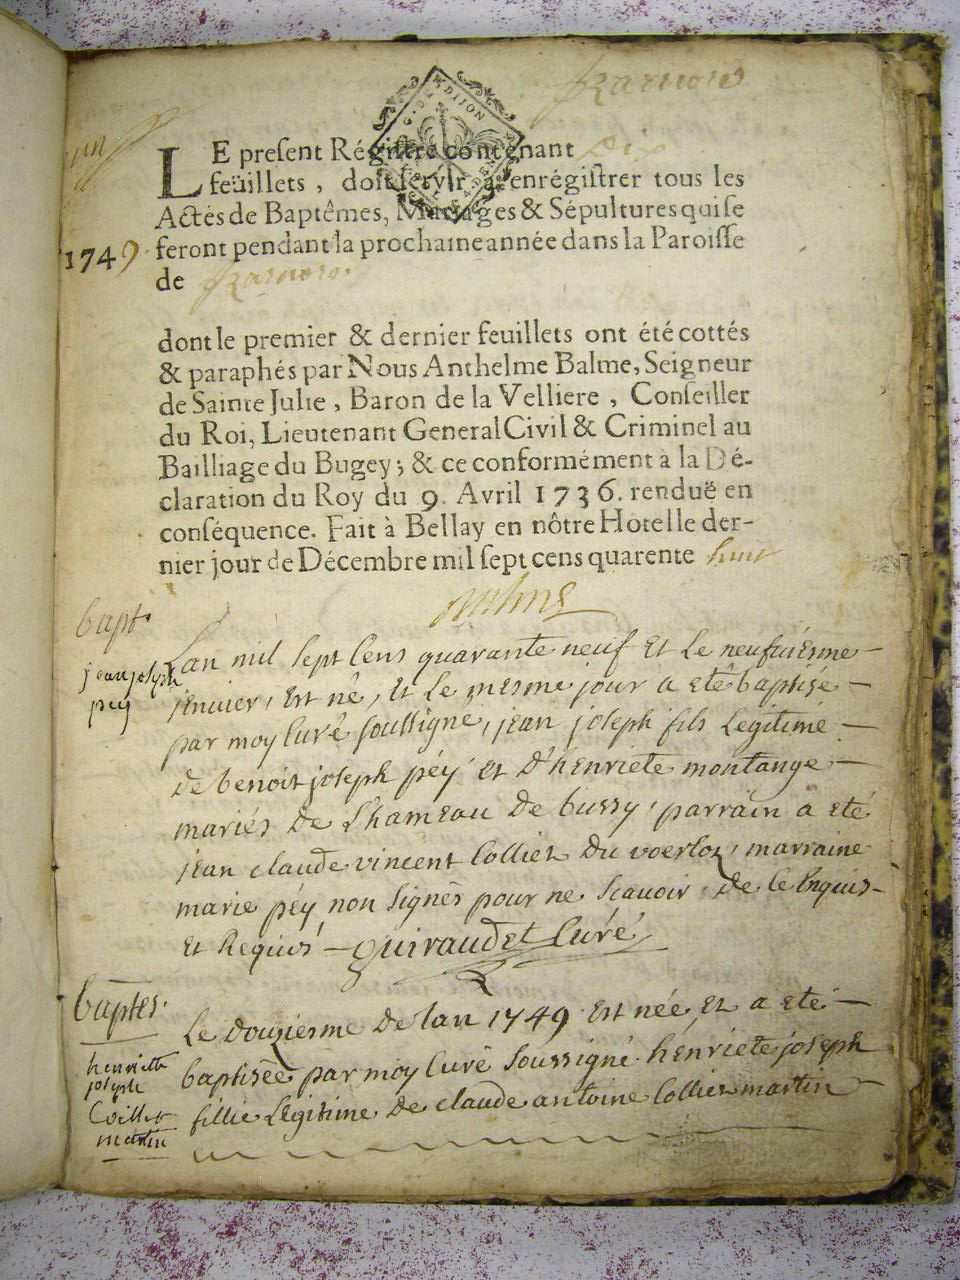 G. DE DIJON
LE preſent Régiſtre contenant Dix
feüillets, doit ſervir à enrégiſtrer tous les
Actes de Baptêmes, Mariages & Sépultures qui ſe
1749. feront pendant la prochaine année dans la Paroiſſe
de
dont le premier & dernier feuillets ont été cottés
& paraphés par Nous Anthelme Balme, Seigneur
de Sainte Julie, Baron de la Velliere, Conſeiller
du Roi, Lieutenant General Civil & Criminel au
Bailliage du Bugey; & ce conformément à la Dé-
claration du Roy du 9. Avril 1736. renduë en
conſéquence. Fait à Bellay en nôtre Hotel le der-
nier jour de Décembre mil ſept cens quarente huit
Balme
bapt.
jean joseph
pey
Lan mil sept Cens quarante neuf Et Le neufviesme
jenvier, Est né, Et Le mesme jour a eté baptise
par moy Curé soussigné, jean joseph fils Legitime
de benoit joseph péy Et D'henriete montange
mariés De L'hameau De bussy, parrain a eté
jean claude vincent Collier Du voerloz, marraine
marie péy non signés pour ne scavoir De Ce Enquis
Et Requis Guiraudet Curé
baptes.
henriette
joseph
Collier
martin
Le Douziesme De lan 1749 Est née Et a eté
baptisée par moy Curé Soussigné henriete joseph
fillie Legitime De claude antoine Collier martin